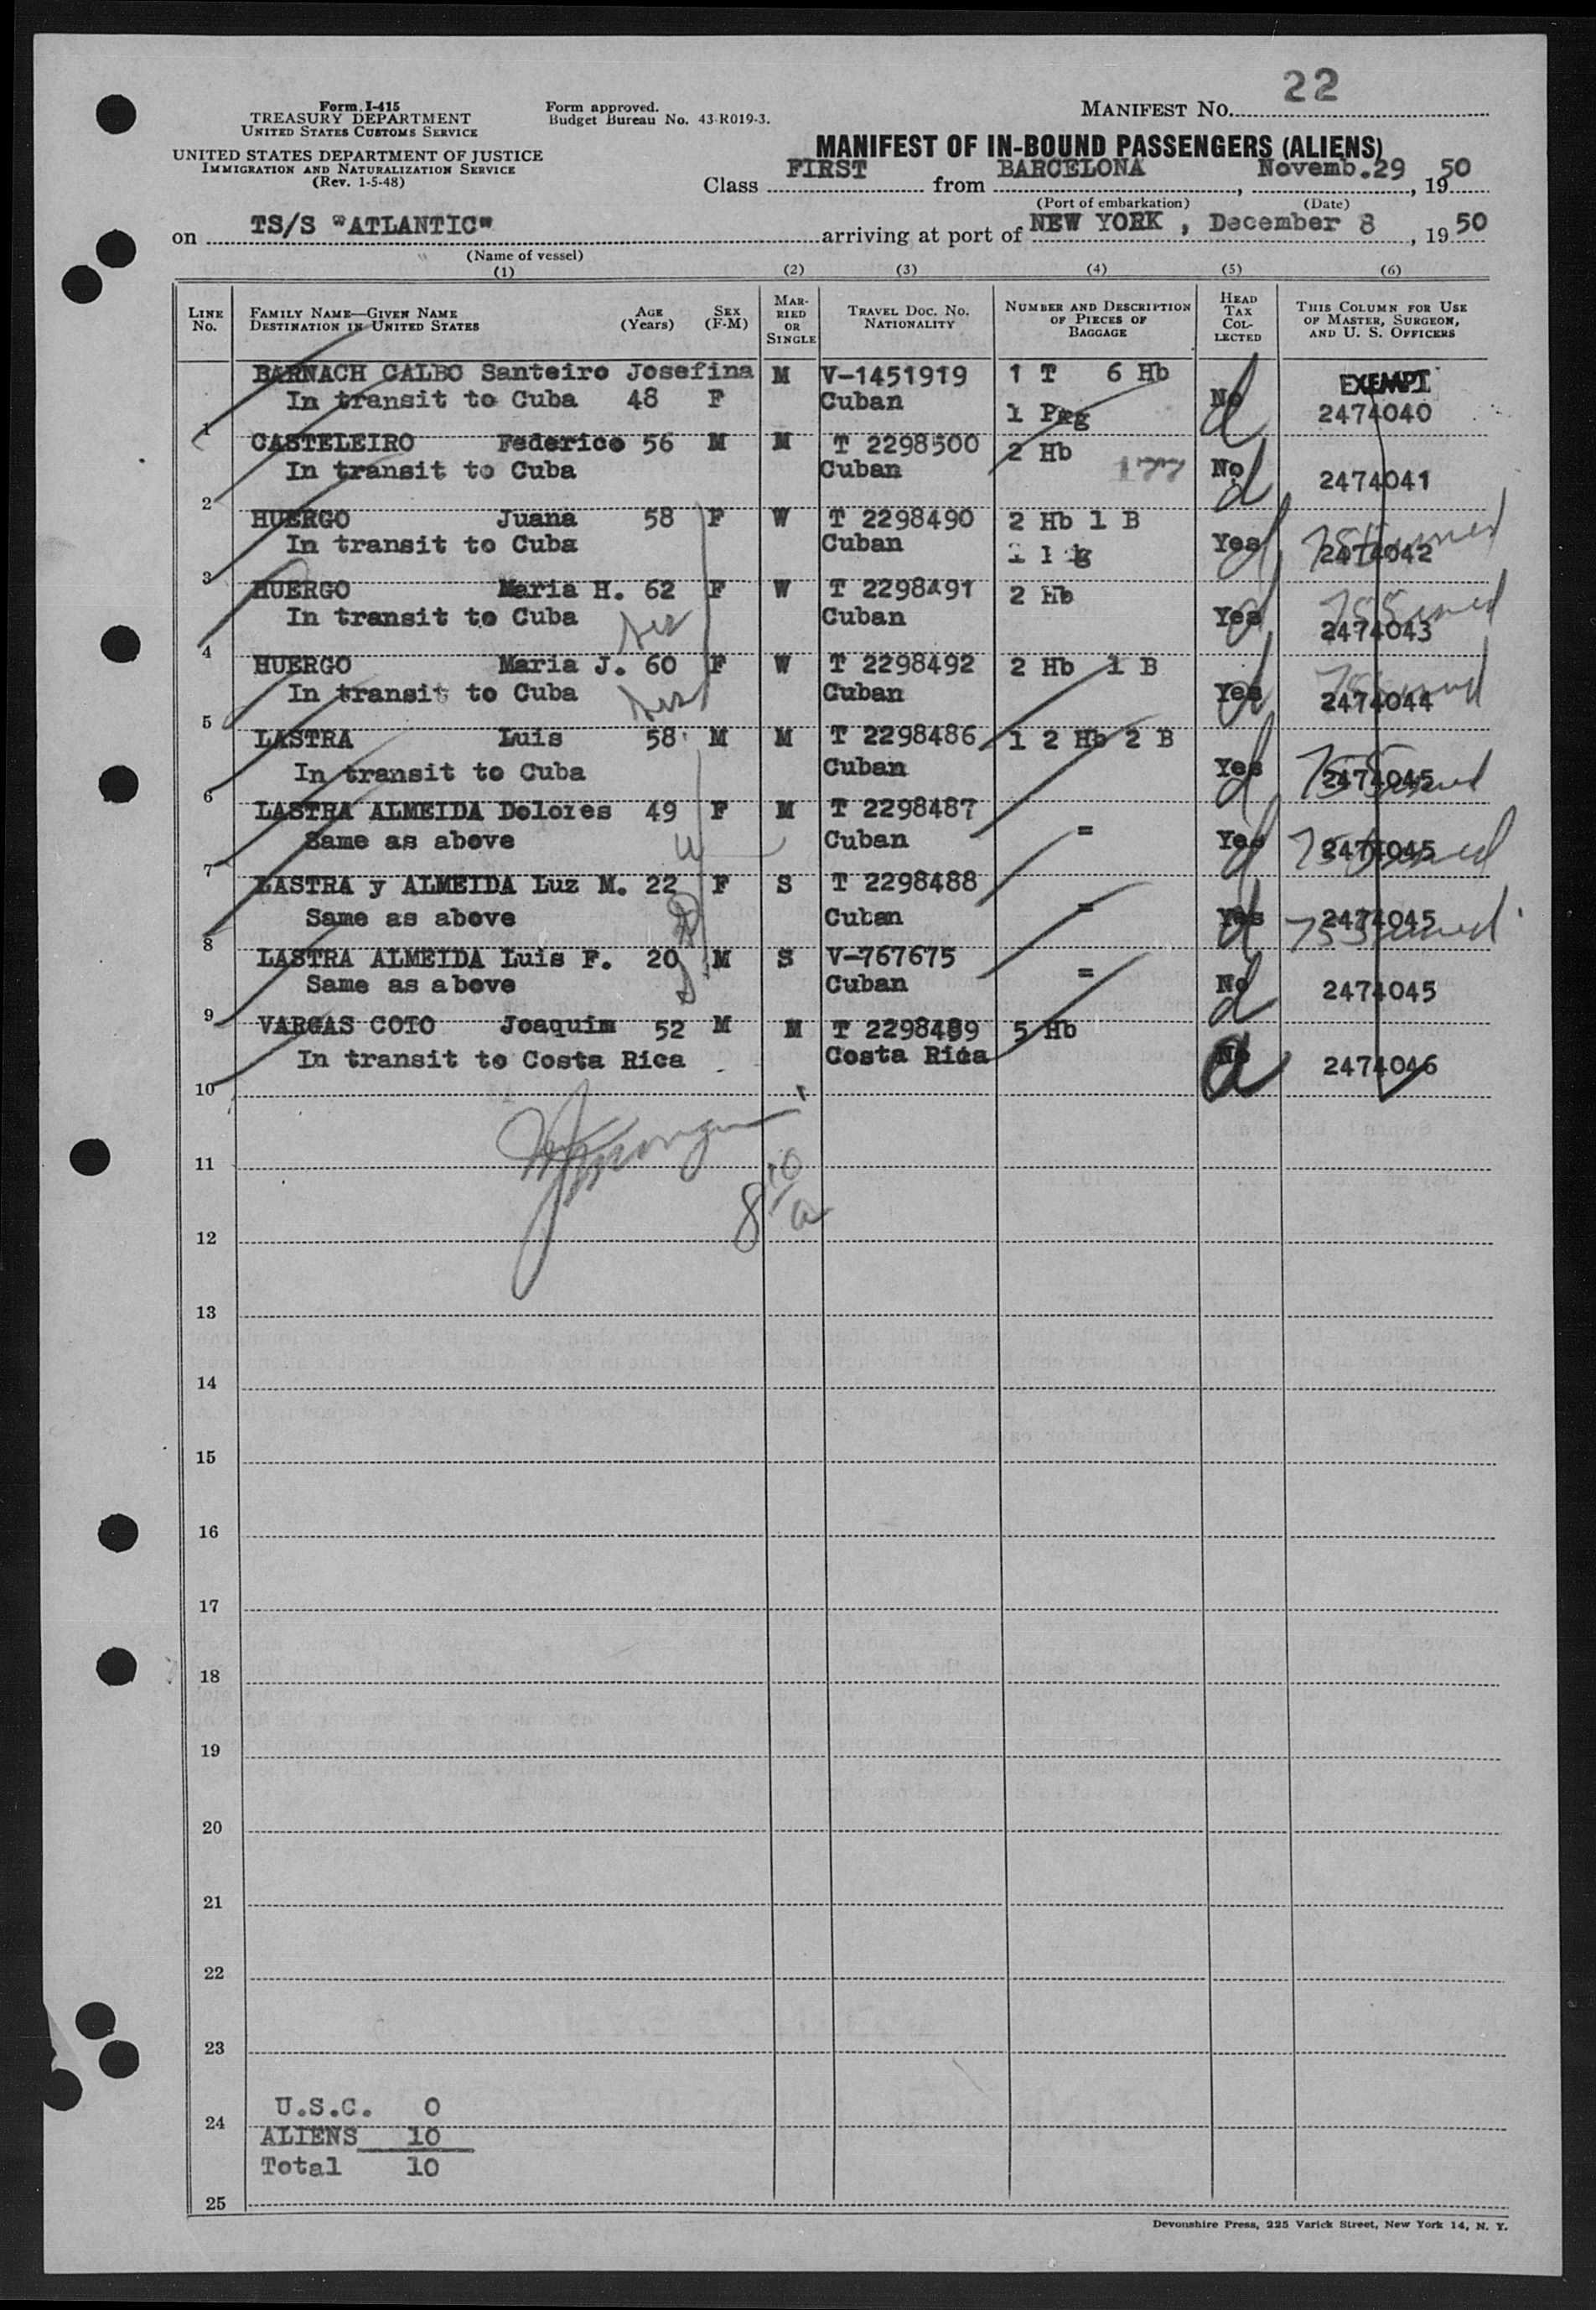 22
Form I-415
TREASURY DEPARTMENT
UNITED STATES CUSTOMS SERVICE
Form approved.
Budget Bureau No. 43-R019-3.
MANIFEST No.
UNITED STATES DEPARTMENT OF JUSTICE
IMMIGRATION AND NATURALIZATION SERVICE
(Rev. 1-5-48)
MANIFEST OF IN-BOUND PASSENGERS (ALIENS)
Class FIRST from BARCELONA, Novemb.29, 1950
(Port of embarkation) (Date)
on TS/S "ATLANTIC" arriving at port of NEW YORK, December 8, 1950
(Name of vessel)
(1) (2) (3) (4) (5) (6)
LINE No. FAMILY NAME—GIVEN NAME DESTINATION IN UNITED STATES AGE (Years) SEX (F-M) MARRIED OR SINGLE TRAVEL DOC. NO. NATIONALITY NUMBER AND DESCRIPTION OF PIECES OF BAGGAGE HEAD TAX COLLECTED THIS COLUMN FOR USE OF MASTER, SURGEON, AND U. S. OFFICERS
BARNACH CALBO Santeiro Josefina M V-1451919 1 T 6 Hb EXEMPT
1 In transit to Cuba 48 F Cuban 1 Pkg No 2474040
CASTELEIRO Federico 56 M M T 2298500 2 Hb
2 In transit to Cuba Cuban 177 No 2474041
HUERGO Juana 58 F W T 2298490 2 Hb 1 B
3 In transit to Cuba Cuban Yes 2474042
HUERGO Maria H. 62 F W T 2298491 2 Hb
4 In transit to Cuba Cuban Yes 2474043
HUERGO Maria J. 60 F W T 2298492 2 Hb 1 B
5 In transit to Cuba Cuban Yes 2474044
LASTRA Luis 58 M M T 2298486 1 2 Hb 2 B
6 In transit to Cuba Cuban Yes 2474045
LASTRA ALMEIDA Dolores 49 F M T 2298487
7 Same as above Cuban = Yes 2474045
LASTRA y ALMEIDA Luz M. 22 F S T 2298488
8 Same as above Cuban = Yes 2474045
LASTRA ALMEIDA Luis F. 20 M S V-767675
9 Same as above Cuban = No 2474045
VARGAS COTO Joaquim 52 M M T 2298489 5 Hb
10 In transit to Costa Rica Costa Rica No 2474046
11
8 10/a
12
13
14
15
16
17
18
19
20
21
22
23
U.S.C. 0
24
ALIENS 10
Total 10
25
Devonshire Press, 225 Varick Street, New York 14, N. Y.